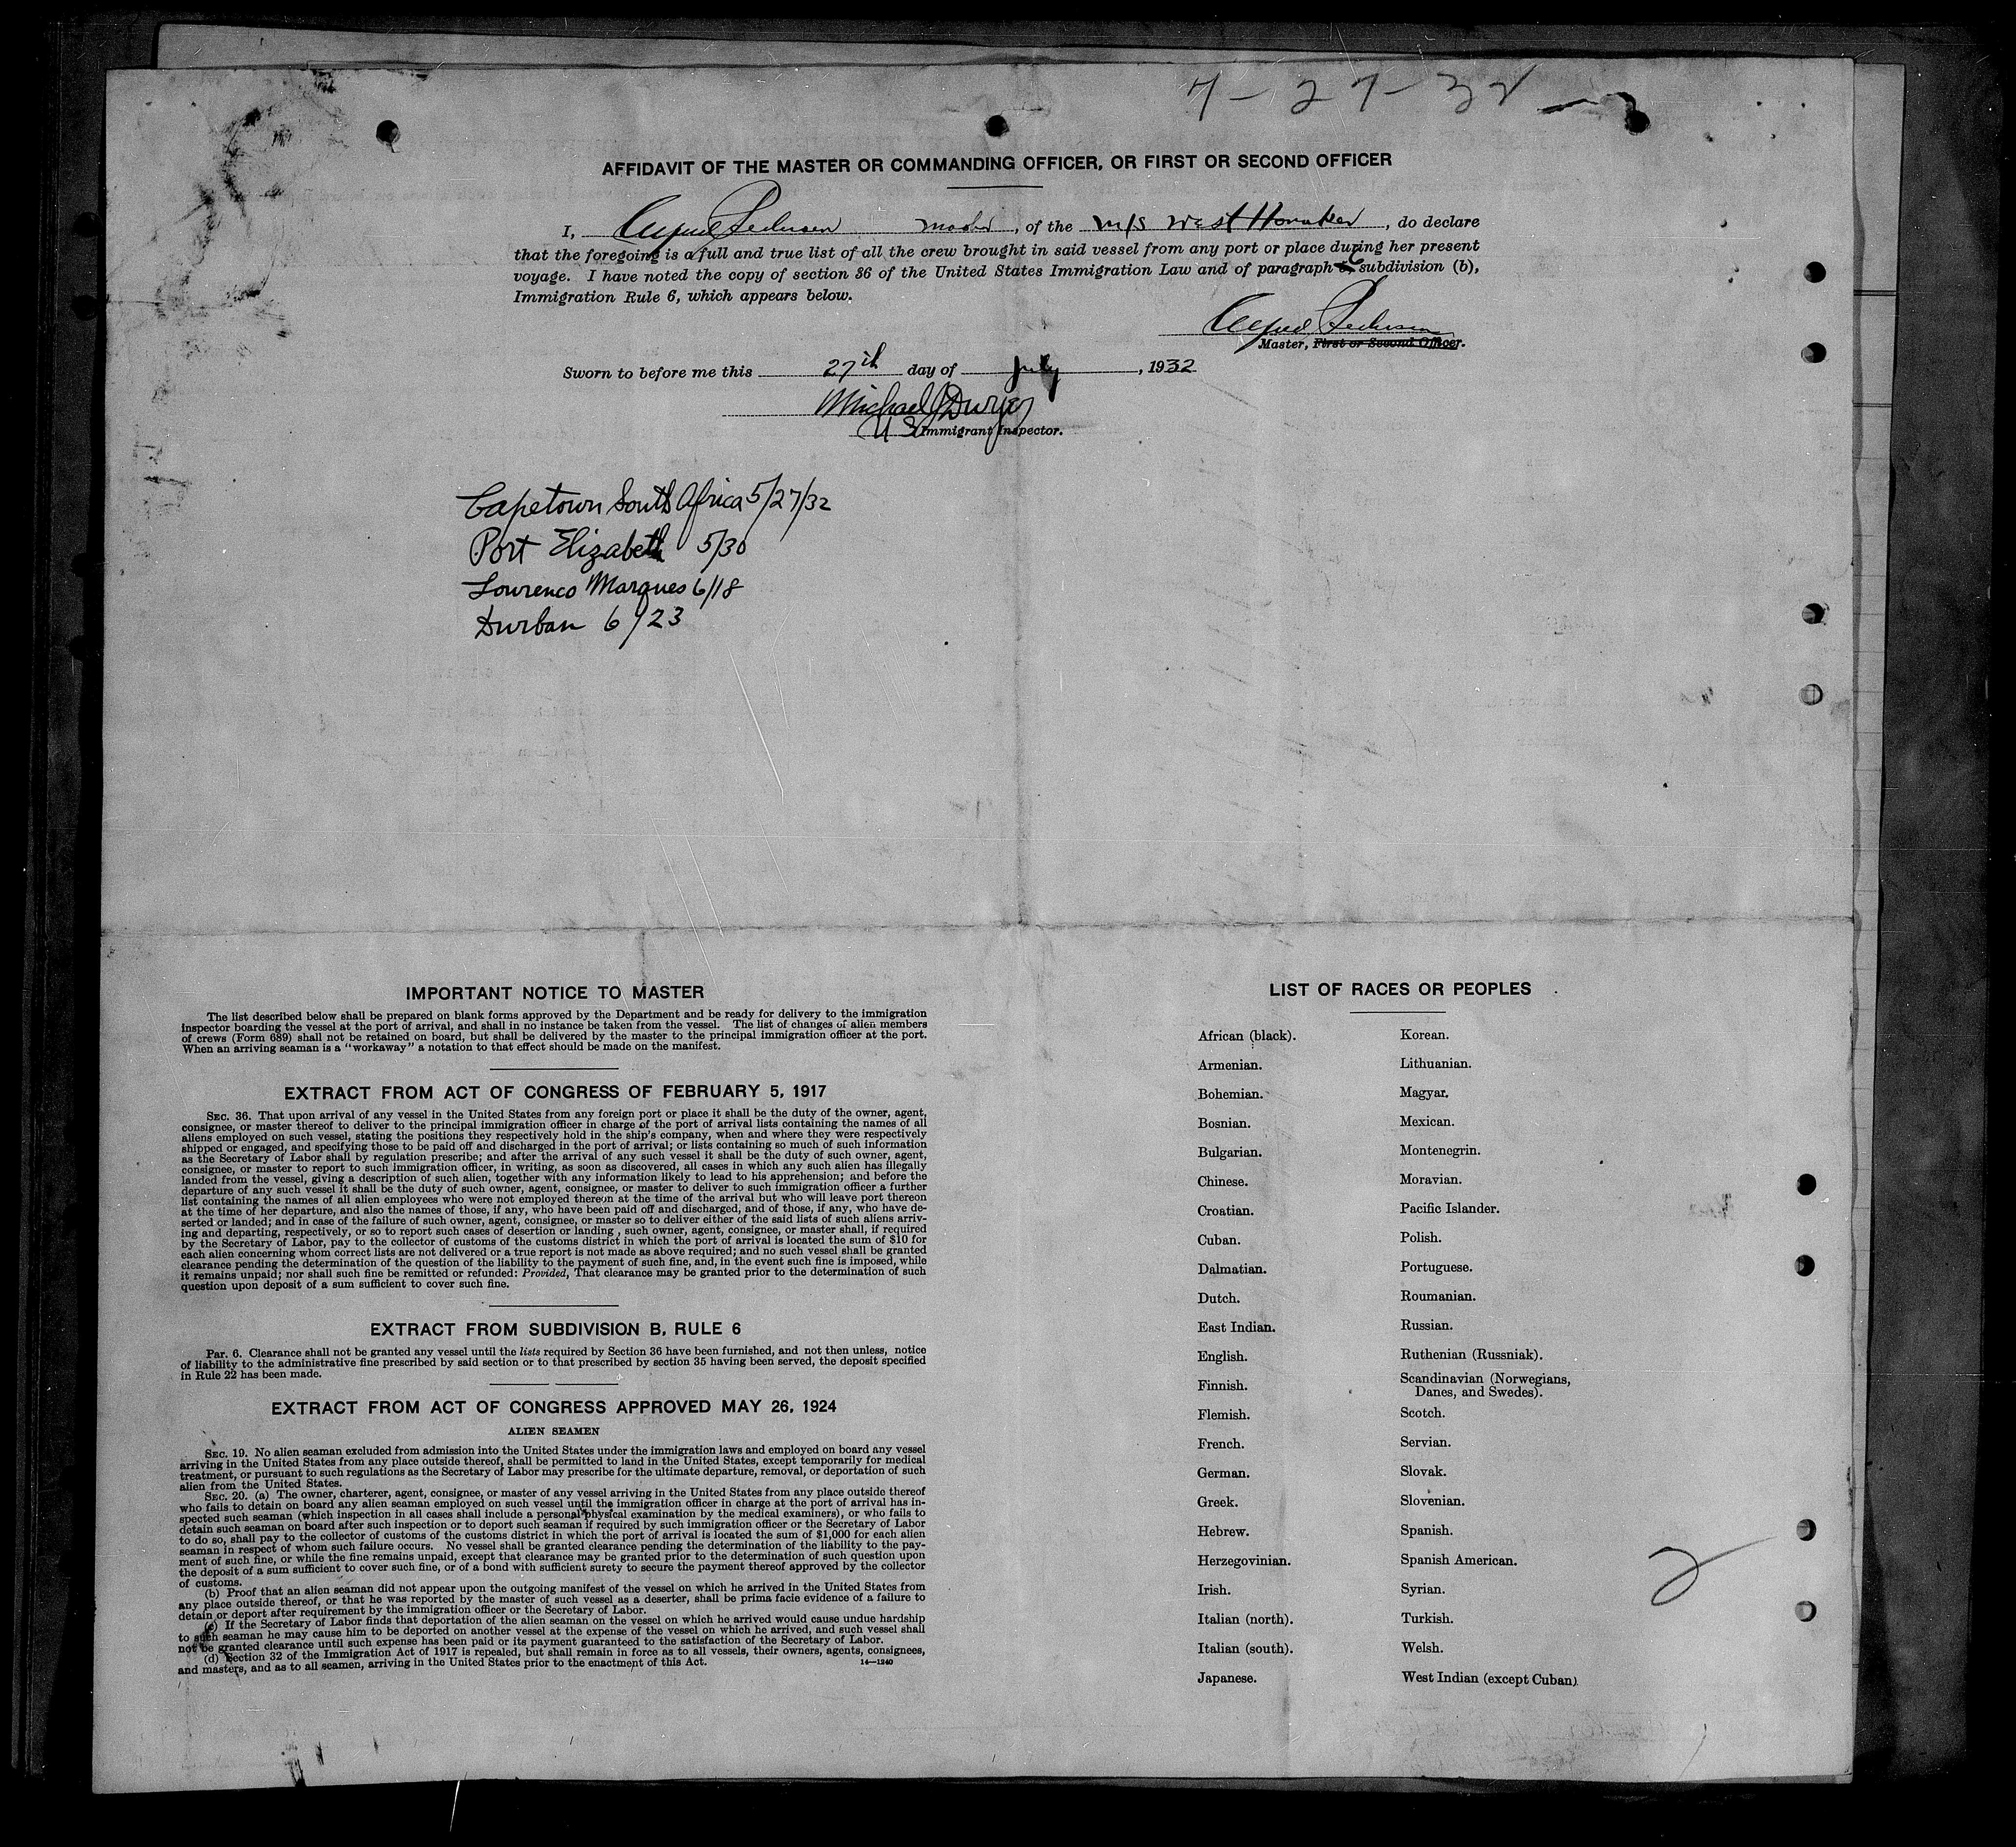 7-27-32
AFFIDAVIT OF THE MASTER OR COMMANDING OFFICER, OR FIRST OR SECOND OFFICER
I, Alfred Pedersen Master, of the M/S West Honaker, do declare
that the foregoing is a full and true list of all the crew brought in said vessel from any port or place during her present
voyage. I have noted the copy of section 36 of the United States Immigration Law and of paragraph 6 subdivision (b),
Immigration Rule 6, which appears below.
Alfred Pedersen
Master, First or Second Officer.
Sworn to before me this 27th day of July, 1932
Michael J Dwyer
U S Immigrant Inspector.
Capetown South Africa 5/27/32
Port Elizabeth 5/30
Lourenco Marques 6/18
Durban 6/23
IMPORTANT NOTICE TO MASTER
The list described below shall be prepared on blank forms approved by the Department and be ready for delivery to the immigration
inspector boarding the vessel at the port of arrival, and shall in no instance be taken from the vessel. The list of changes of alien members
of crews (Form 689) shall not be retained on board, but shall be delivered by the master to the principal immigration officer at the port.
When an arriving seaman is a "workaway" a notation to that effect should be made on the manifest.
EXTRACT FROM ACT OF CONGRESS OF FEBRUARY 5, 1917
SEC. 36. That upon arrival of any vessel in the United States from any foreign port or place it shall be the duty of the owner, agent,
consignee, or master thereof to deliver to the principal immigration officer in charge of the port of arrival lists containing the names of all
aliens employed on such vessel, stating the positions they respectively hold in the ship's company, when and where they were respectively
shipped or engaged, and specifying those to be paid off and discharged in the port of arrival; or lists containing so much of such information
as the Secretary of Labor shall by regulation prescribe; and after the arrival of any such vessel it shall be the duty of such owner, agent,
consignee, or master to report to such immigration officer, in writing, as soon as discovered, all cases in which any such alien has illegally
landed from the vessel, giving a description of such alien, together with any information likely to lead to his apprehension; and before the
departure of any such vessel it shall be the duty of such owner, agent, consignee, or master to deliver to such immigration officer a further
list containing the names of all alien employees who were not employed thereon at the time of the arrival but who will leave port thereon
at the time of her departure, and also the names of those, if any, who have been paid off and discharged, and of those, if any, who have de-
serted or landed; and in case of the failure of such owner, agent, consignee, or master so to deliver either of the said lists of such aliens arriv-
ing and departing, respectively, or so to report such cases of desertion or landing , such owner, agent, consignee, or master shall, if required
by the Secretary of Labor, pay to the collector of customs of the customs district in which the port of arrival is located the sum of $10 for
each alien concerning whom correct lists are not delivered or a true report is not made as above required; and no such vessel shall be granted
clearance pending the determination of the question of the liability to the payment of such fine, and, in the event such fine is imposed, while
it remains unpaid; nor shall such fine be remitted or refunded: Provided, That clearance may be granted prior to the determination of such
question upon deposit of a sum sufficient to cover such fine.
EXTRACT FROM SUBDIVISION B, RULE 6
Par. 6. Clearance shall not be granted any vessel until the lists required by Section 36 have been furnished, and not then unless, notice
of liability to the administrative fine prescribed by said section or to that prescribed by section 35 having been served, the deposit specified
in Rule 22 has been made.
EXTRACT FROM ACT OF CONGRESS APPROVED MAY 26, 1924
ALIEN SEAMEN
SEC. 19. No alien seaman excluded from admission into the United States under the immigration laws and employed on board any vessel
arriving in the United States from any place outside thereof, shall be permitted to land in the United States, except temporarily for medical
treatment, or pursuant to such regulations as the Secretary of Labor may prescribe for the ultimate departure, removal, or deportation of such
alien from the United States.
SEC. 20. (a) The owner, charterer, agent, consignee, or master of any vessel arriving in the United States from any place outside thereof
who fails to detain on board any alien seaman employed on such vessel until the immigration officer in charge at the port of arrival has in-
spected such seaman (which inspection in all cases shall include a personal physical examination by the medical examiners), or who fails to
detain such seaman on board after such inspection or to deport such seaman if required by such immigration officer or the Secretary of Labor
to do so, shall pay to the collector of customs of the customs district in which the port of arrival is located the sum of $1,000 for each alien
seaman in respect of whom such failure occurs. No vessel shall be granted clearance pending the determination of the liability to the pay-
ment of such fine, or while the fine remains unpaid, except that clearance may be granted prior to the determination of such question upon
the deposit of a sum sufficient to cover such fine, or of a bond with sufficient surety to secure the payment thereof approved by the collector
of customs.
(b) Proof that an alien seaman did not appear upon the outgoing manifest of the vessel on which he arrived in the United States from
any place outside thereof, or that he was reported by the master of such vessel as a deserter, shall be prima facie evidence of a failure to
detain or deport after requirement by the immigration officer or the Secretary of Labor.
(c) If the Secretary of Labor finds that deportation of the alien seaman on the vessel on which he arrived would cause undue hardship
to such seaman he may cause him to be deported on another vessel at the expense of the vessel on which he arrived, and such vessel shall
not be granted clearance until such expense has been paid or its payment guaranteed to the satisfaction of the Secretary of Labor.
(d) Section 32 of the Immigration Act of 1917 is repealed, but shall remain in force as to all vessels, their owners, agents, consignees,
and masters, and as to all seamen, arriving in the United States prior to the enactment of this Act.
14—1240
LIST OF RACES OR PEOPLES
African (black).
Armenian.
Bohemian.
Bosnian.
Bulgarian.
Chinese.
Croatian.
Cuban.
Dalmatian.
Dutch.
East Indian.
English.
Finnish.
Flemish.
French.
German.
Greek.
Hebrew.
Herzegovinian.
Irish.
Italian (north).
Italian (south).
Japanese.
Korean.
Lithuanian.
Magyar.
Mexican.
Montenegrin.
Moravian.
Pacific Islander.
Polish.
Portuguese.
Roumanian.
Russian.
Ruthenian (Russniak).
Scandinavian (Norwegians,
Danes, and Swedes).
Scotch.
Servian.
Slovak.
Slovenian.
Spanish.
Spanish American.
Syrian.
Turkish.
Welsh.
West Indian (except Cuban).
2